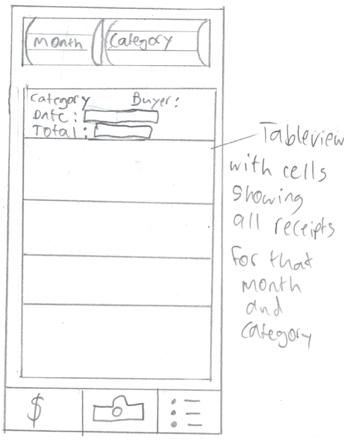 Month Category
Category Buyer:
Date:
Total:
Tableview
with cells
showing
all receipts
for that
month
and
category
$